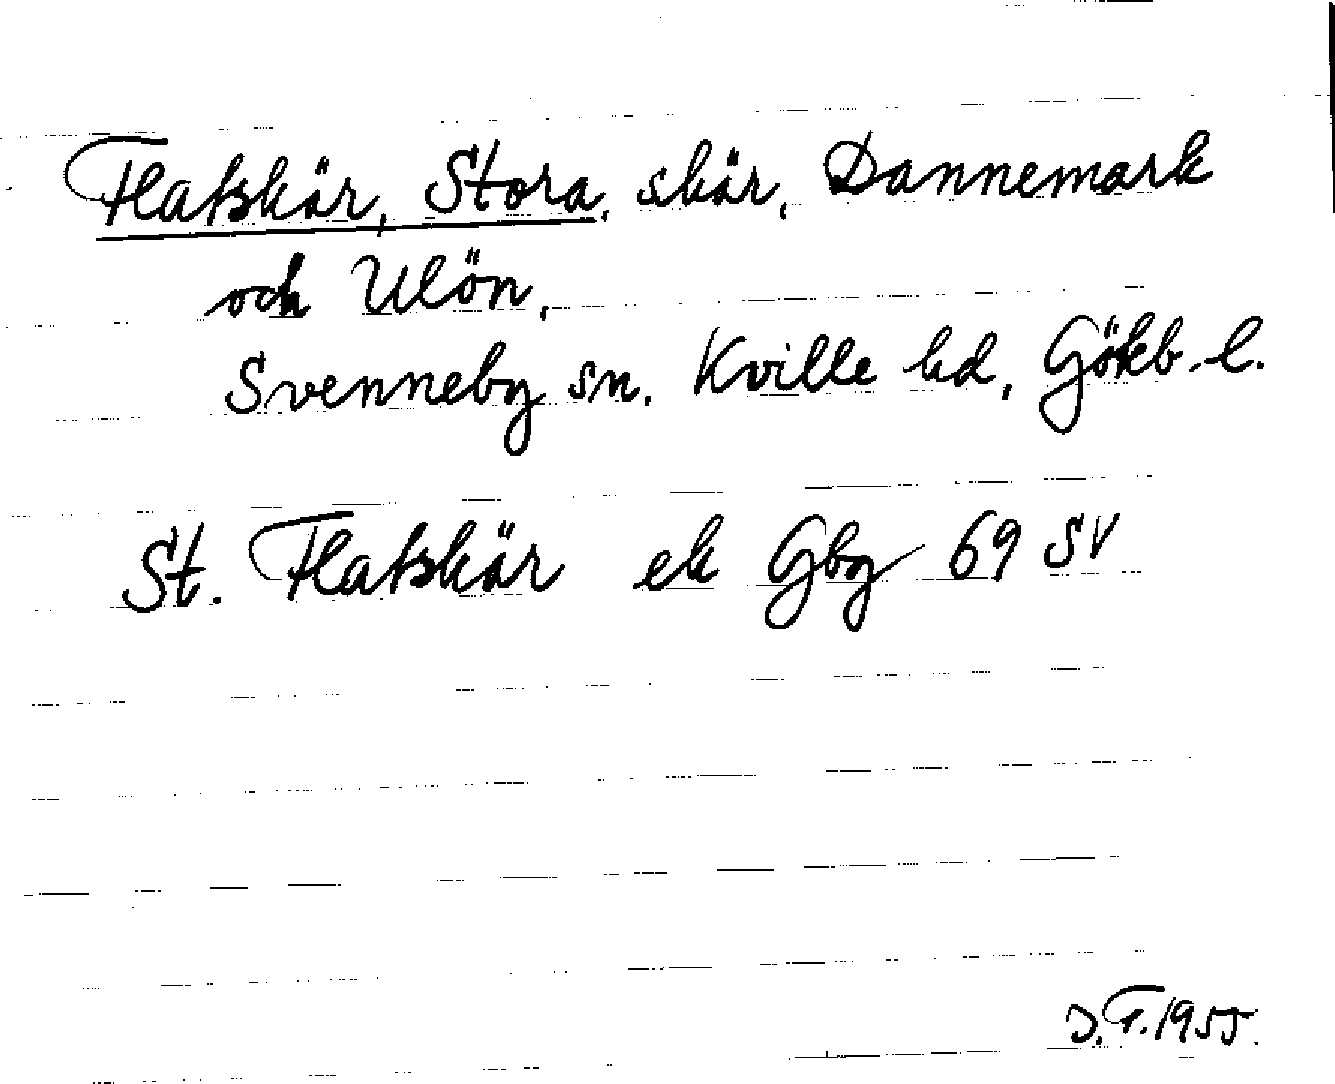 Flatskär, Stora, skär, Dannemark
och Ulön,
Svenneby sn. Kville hd, Gökb. l.
St. Flatskär ek Gbg 69 SV
D.F. 1955.